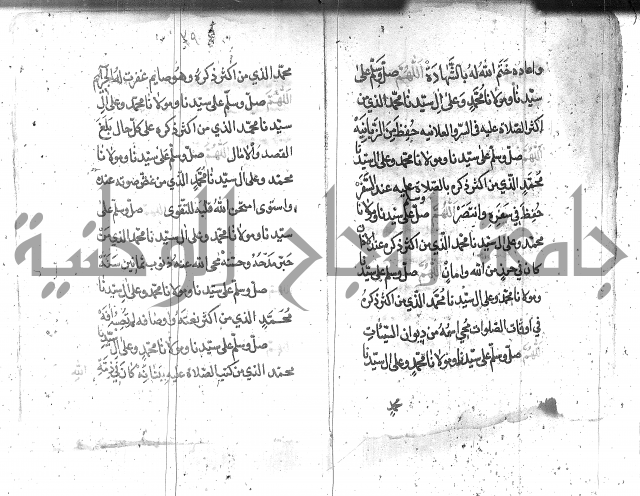 واعاده ختم الله له بالشهادة اللهم صل وسلم على
سيدنا ومولانا محمد وعلى ال سيدنا محمد الذي من
اكثر الصلاة عليه في السر والعلانيه حفظ من الزبانية
اللهم صل وسلم على سيدنا ومولانا محمد وعلى ال سيدنا
محمد الذي من اكثر ذكره بالصلاة عليه عند السفر
حفظ في سفره وانتصر اللهم صل وسلم على سيدنا ومولانا
محمد وعلى ال سيدنا محمد الذي من اكثر ذكره عند
كان في حرز من الله وامان اللهم صل وسلم على سيدنا
ومولانا محمد وعلى ال سيدنا محمد الذي من اكثر ذكره
في اوقات الصلوات محي اسمه من ديوان السيئات
اللهم صل وسلم على سيدنا ومولانا محمد وعلى ال سيدنا
محمد
محمد الذي من اكثر ذكره وهو صايم غفرت له الجرآيم
اللهم صل وسلم على سيدنا ومولانا محمد وعلى ال
سيدنا محمد الذي من اكثر ذكره على كل حال بلغ
القصد والامال اللهم صل وسلم على سيدنا ومولانا
محمد وعلى ال سيدنا محمد الذي من غض صوته عنده
واستوى امتحن الله قلبه للتقوى اللهم صل وسلم على
سيدنا ومولانا محمد وعلى ال سيدنا محمد الذي من
محي الله عنه ذنوب ثمانين سنة
اللهم صل وسلم على سيدنا ومولانا محمد وعلى ال سيدنا
محمد الذي من اكثر نعته واوصافه
اللهم صل وسلم على سيدنا ومولانا محمد وعلى ال سيدنا
محمد الذي من كتب الصلاة عليه ببنانه كان في
جامعة النجاح الوطنية